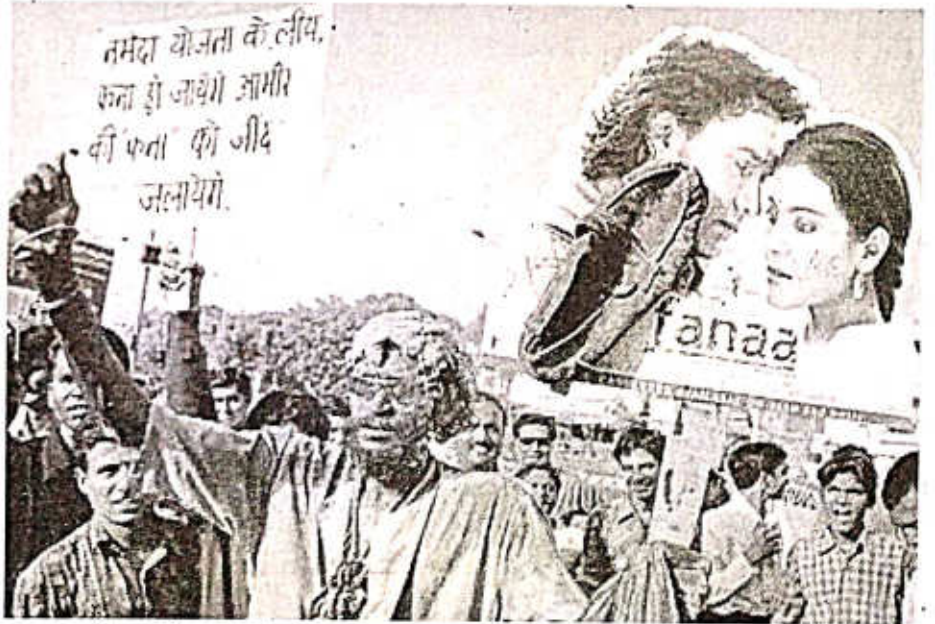 नर्मदा योजना के लीय,
फना हो जायेगे आमीर
की फना की जीद
जलायेगे.
fanaa